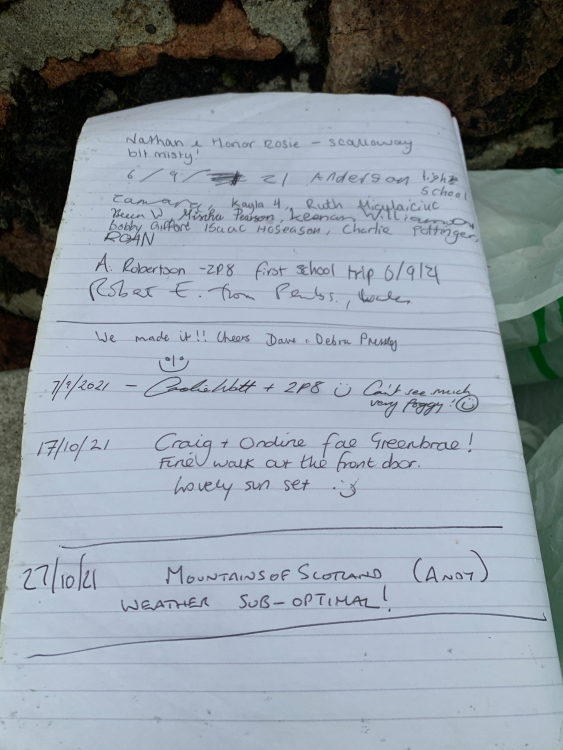 Nathan & Honor Rosie - Scalloway
bit misty!
6/9/ 21 Anderson high
School
Tamara, Kayla H, Ruth
W, Pearson, Keenan Williamson
Bobby Gifford Isaac Hoseason, Charlie Pottinger,
ROAN
A. Robertson - 2P8 first school trip 6/9/21
Robat E. from Pembs., Wales
We made it!! Cheers Dave + Debra Pressley
7/9/2021 - Watt + 2P8 Can't see much
very foggy!
17/10/21 Craig + Ondine fae Greenbrae!
Fine walk out the front door.
Lovely sun set :)
27/10/21 MOUNTAINS OF SCOTLAND (ANDY)
WEATHER SUB-OPTIMAL!